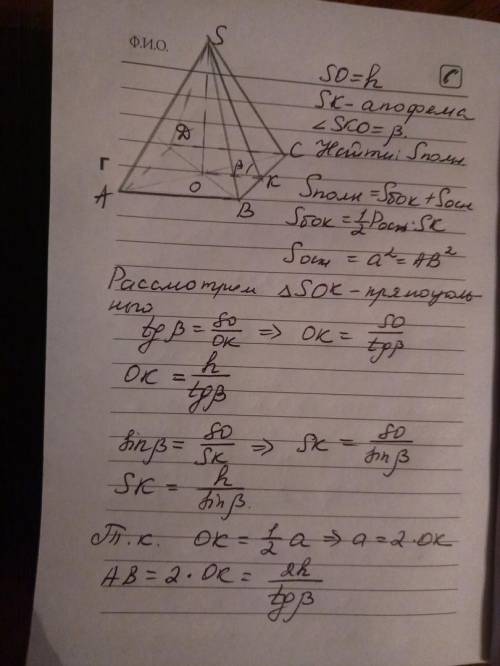 Ф.И.О.
S
D
Г
A
O
B
β
K
C
SO = h
SK - апофема
∠SKO = β.
Найти: Sполн
Sполн = Sбок + Sосн
Sбок = 1/2 Pосн · SK
Sосн = a² = AB²
Рассмотрим △SOK - прямоуголь
ного
tgβ = SO/OK ⇒ OK = SO/tgβ
OK = h/tgβ
sinβ = SO/SK ⇒ SK = SO/sinβ
SK = h/sinβ.
Т.к. OK = 1/2 a ⇒ a = 2·OK
AB = 2·OK = 2h/tgβ